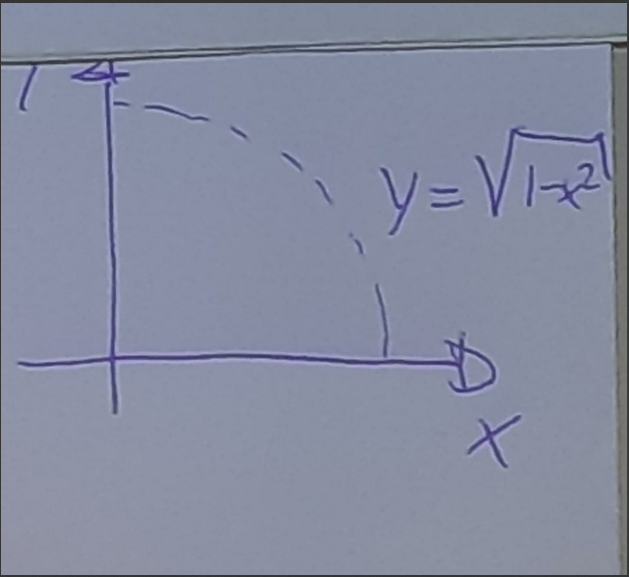 y = √(1-x²)
x